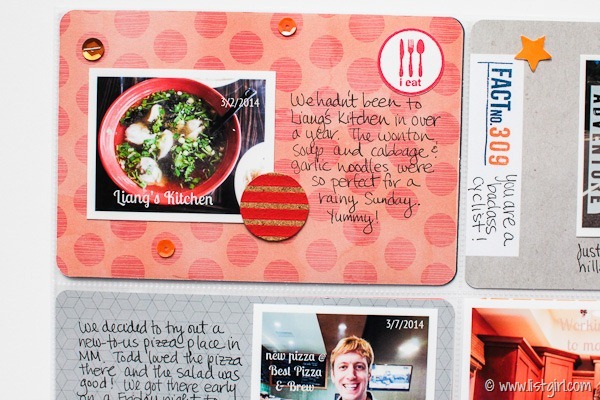 i eat
3/2/2014
Liang's Kitchen
We hadn't been to
Liang's Kitchen in over
a year. The wonton
soup and cabbage &
garlic noodles were
so perfect for a
rainy Sunday.
Yummy!
FACT NO. 309
You are a
badass
cyclist!
ADVENTURE
Just
hill
We decided to try out a
new-to-us pizza place in
MM. Todd loved the pizza
there and the salad was
good! We got there early
on a Friday night to
3/7/2014
new pizza @
Best Pizza
& Brew
Working
to ma
© www.listgirl.com